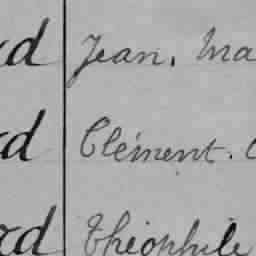 d Jean. Ma
d Clément.
d Théophile